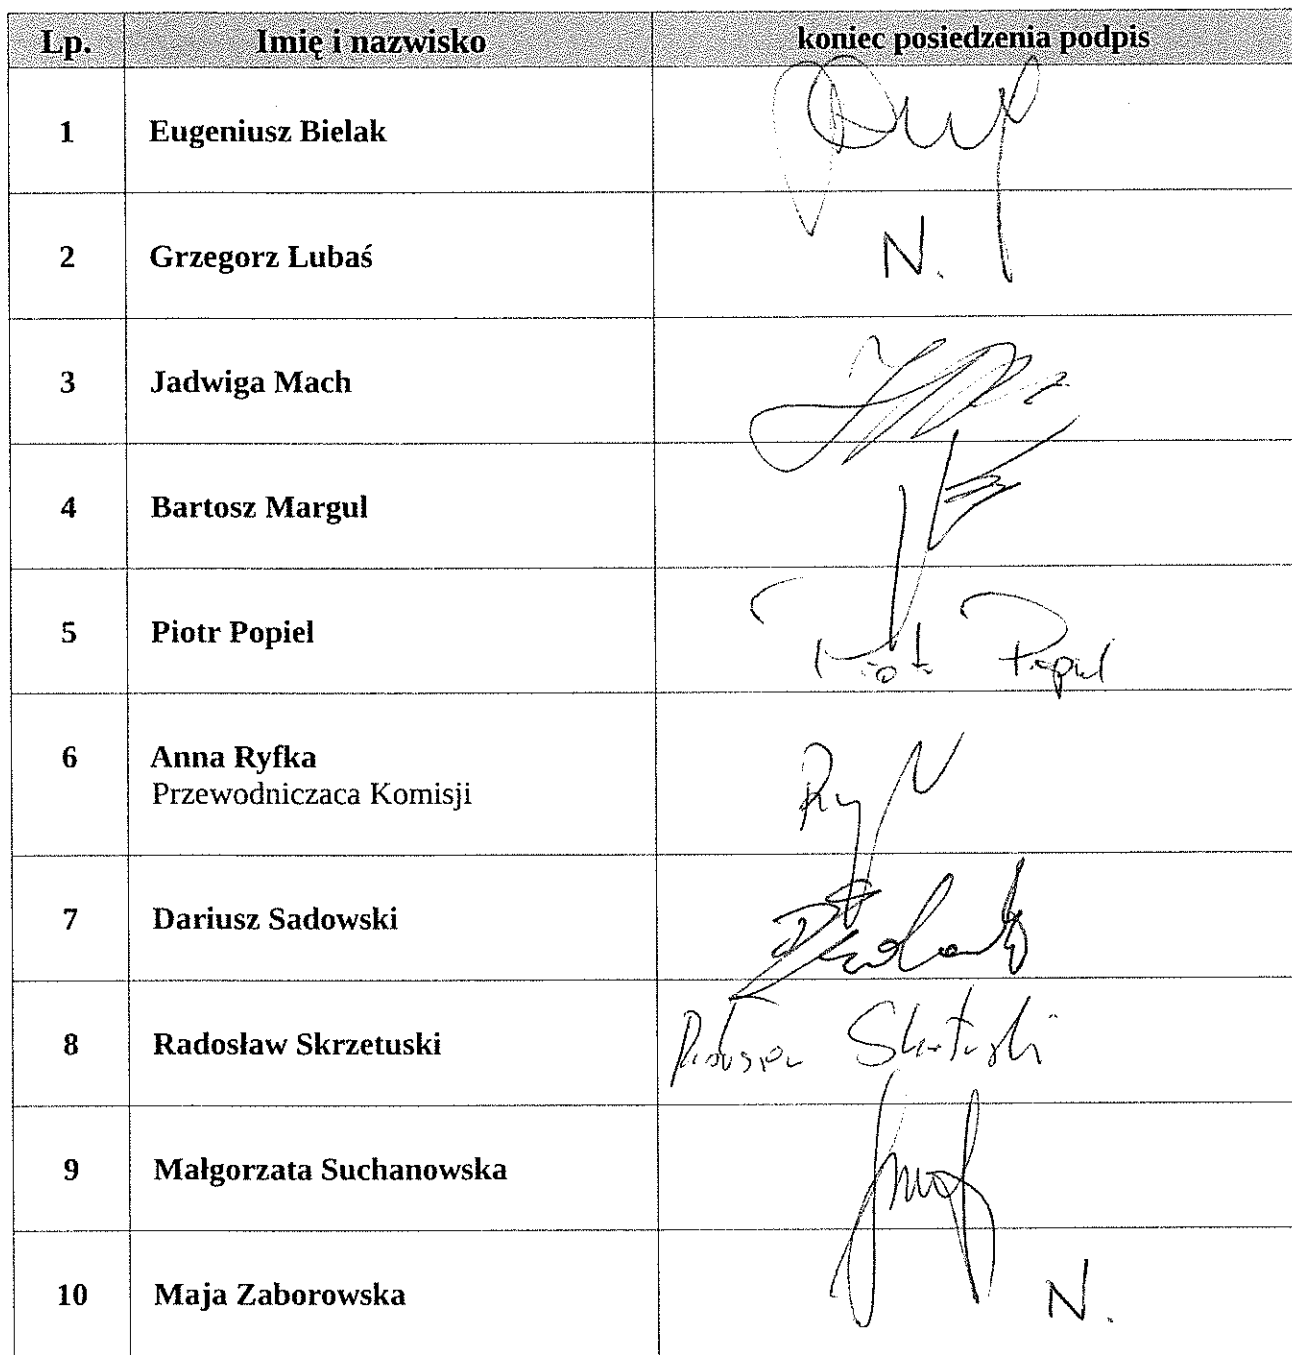 Lp. Imię i nazwisko koniec posiedzenia podpis
1 Eugeniusz Bielak
2 Grzegorz Lubaś N.
3 Jadwiga Mach
4 Bartosz Margul
5 Piotr Popiel Piotr Popiel
6 Anna Ryfka
Przewodniczaca Komisji
7 Dariusz Sadowski
8 Radosław Skrzetuski
9 Małgorzata Suchanowska
10 Maja Zaborowska N.